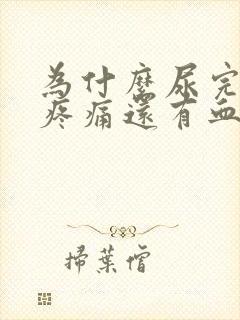 為什麼尿完
疼痛還有血
掃葉僧